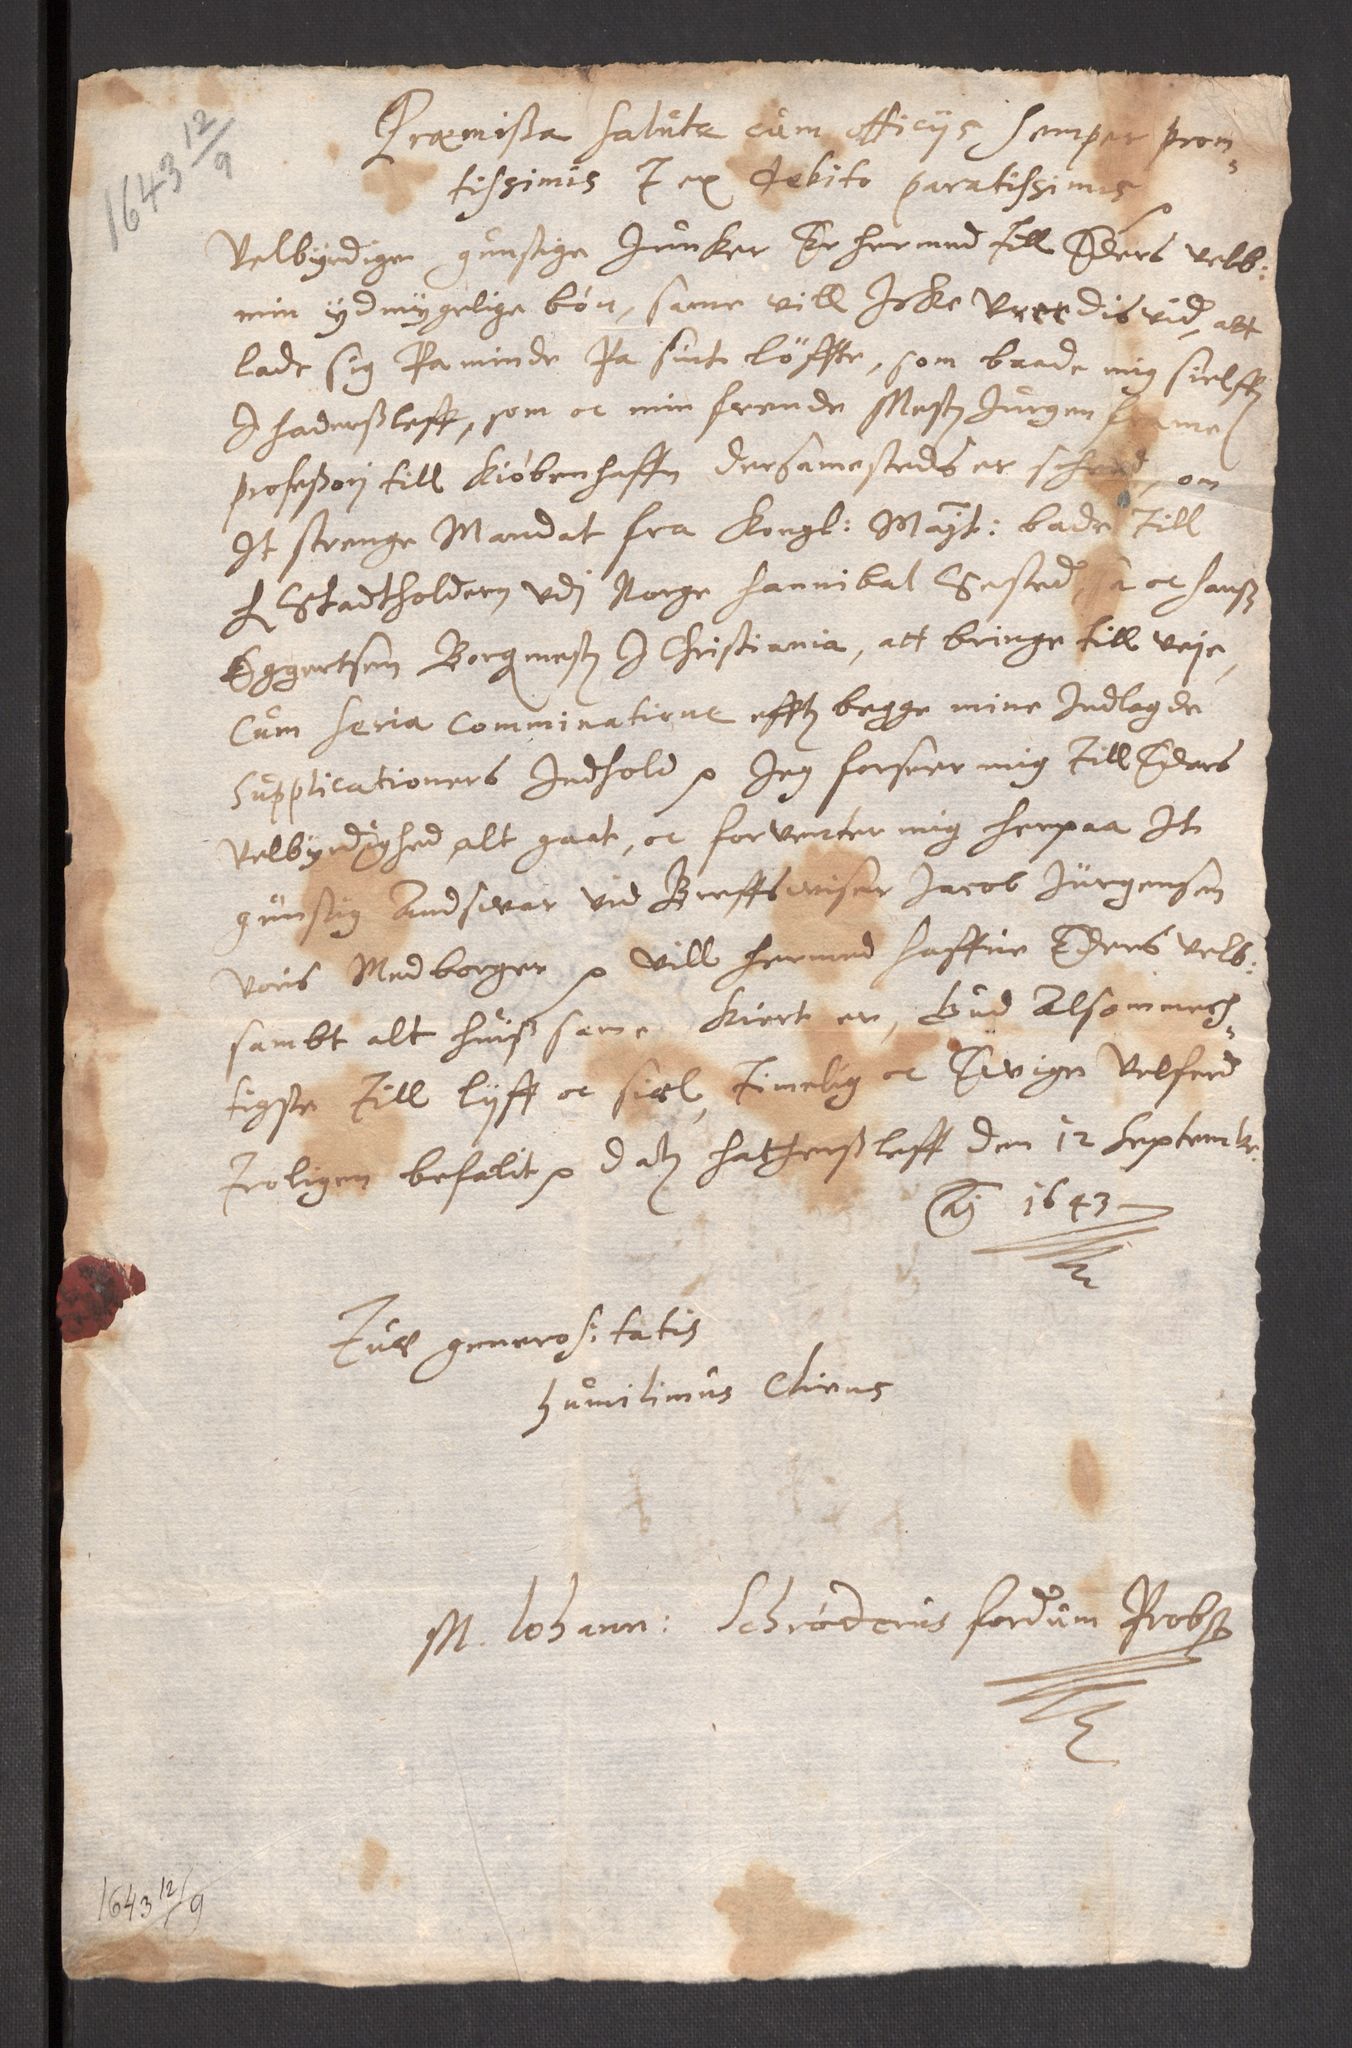 1643 12/9
Præmissa salute cum officijs semper prom-
tissimis & ex debito paratissimis
Velbyrdige günstige Juncker Er hermed till Eders velb:
min ydmygelige bön, same vill Icke vredis vid, att
lade sig Paminde Pa sint löffte, som baade mig sielff
I haderssleff, som oc min frende Mestr Jürgen
professorj till Kiöbenhaffn dersamesteds er scheed, om
It strenge Mandat fra Kongl: Maÿt: bade till
H Stadtholdern vdj Norge Hannibal Sested, oc Hanss
Eggertsen Borgmestr I Christiania, att bringe till veje,
Cum seria comminatione efftr begge mine Indlagde
Supplicationers Indhold Jeg forseer mig till Eders
Velbyrdighed alt gaat, oc forventer mig herpaa It
günstig Andswar vid Breffswiser Jacob Jürgensen
voris Medborger vill hermed haffue Eders velb:
sambt alt huiss same kiert er, Gud Alsommech-
tigste till lyff oc siel, timelig oc Ewige velferd
troligen befalit Datr hatherssleff den 12 Septemb:
Aõ 1643
Tuæ generositatis
humilimus Cliens
M. Johann: Schröderus fordum Probst
1643 12/9